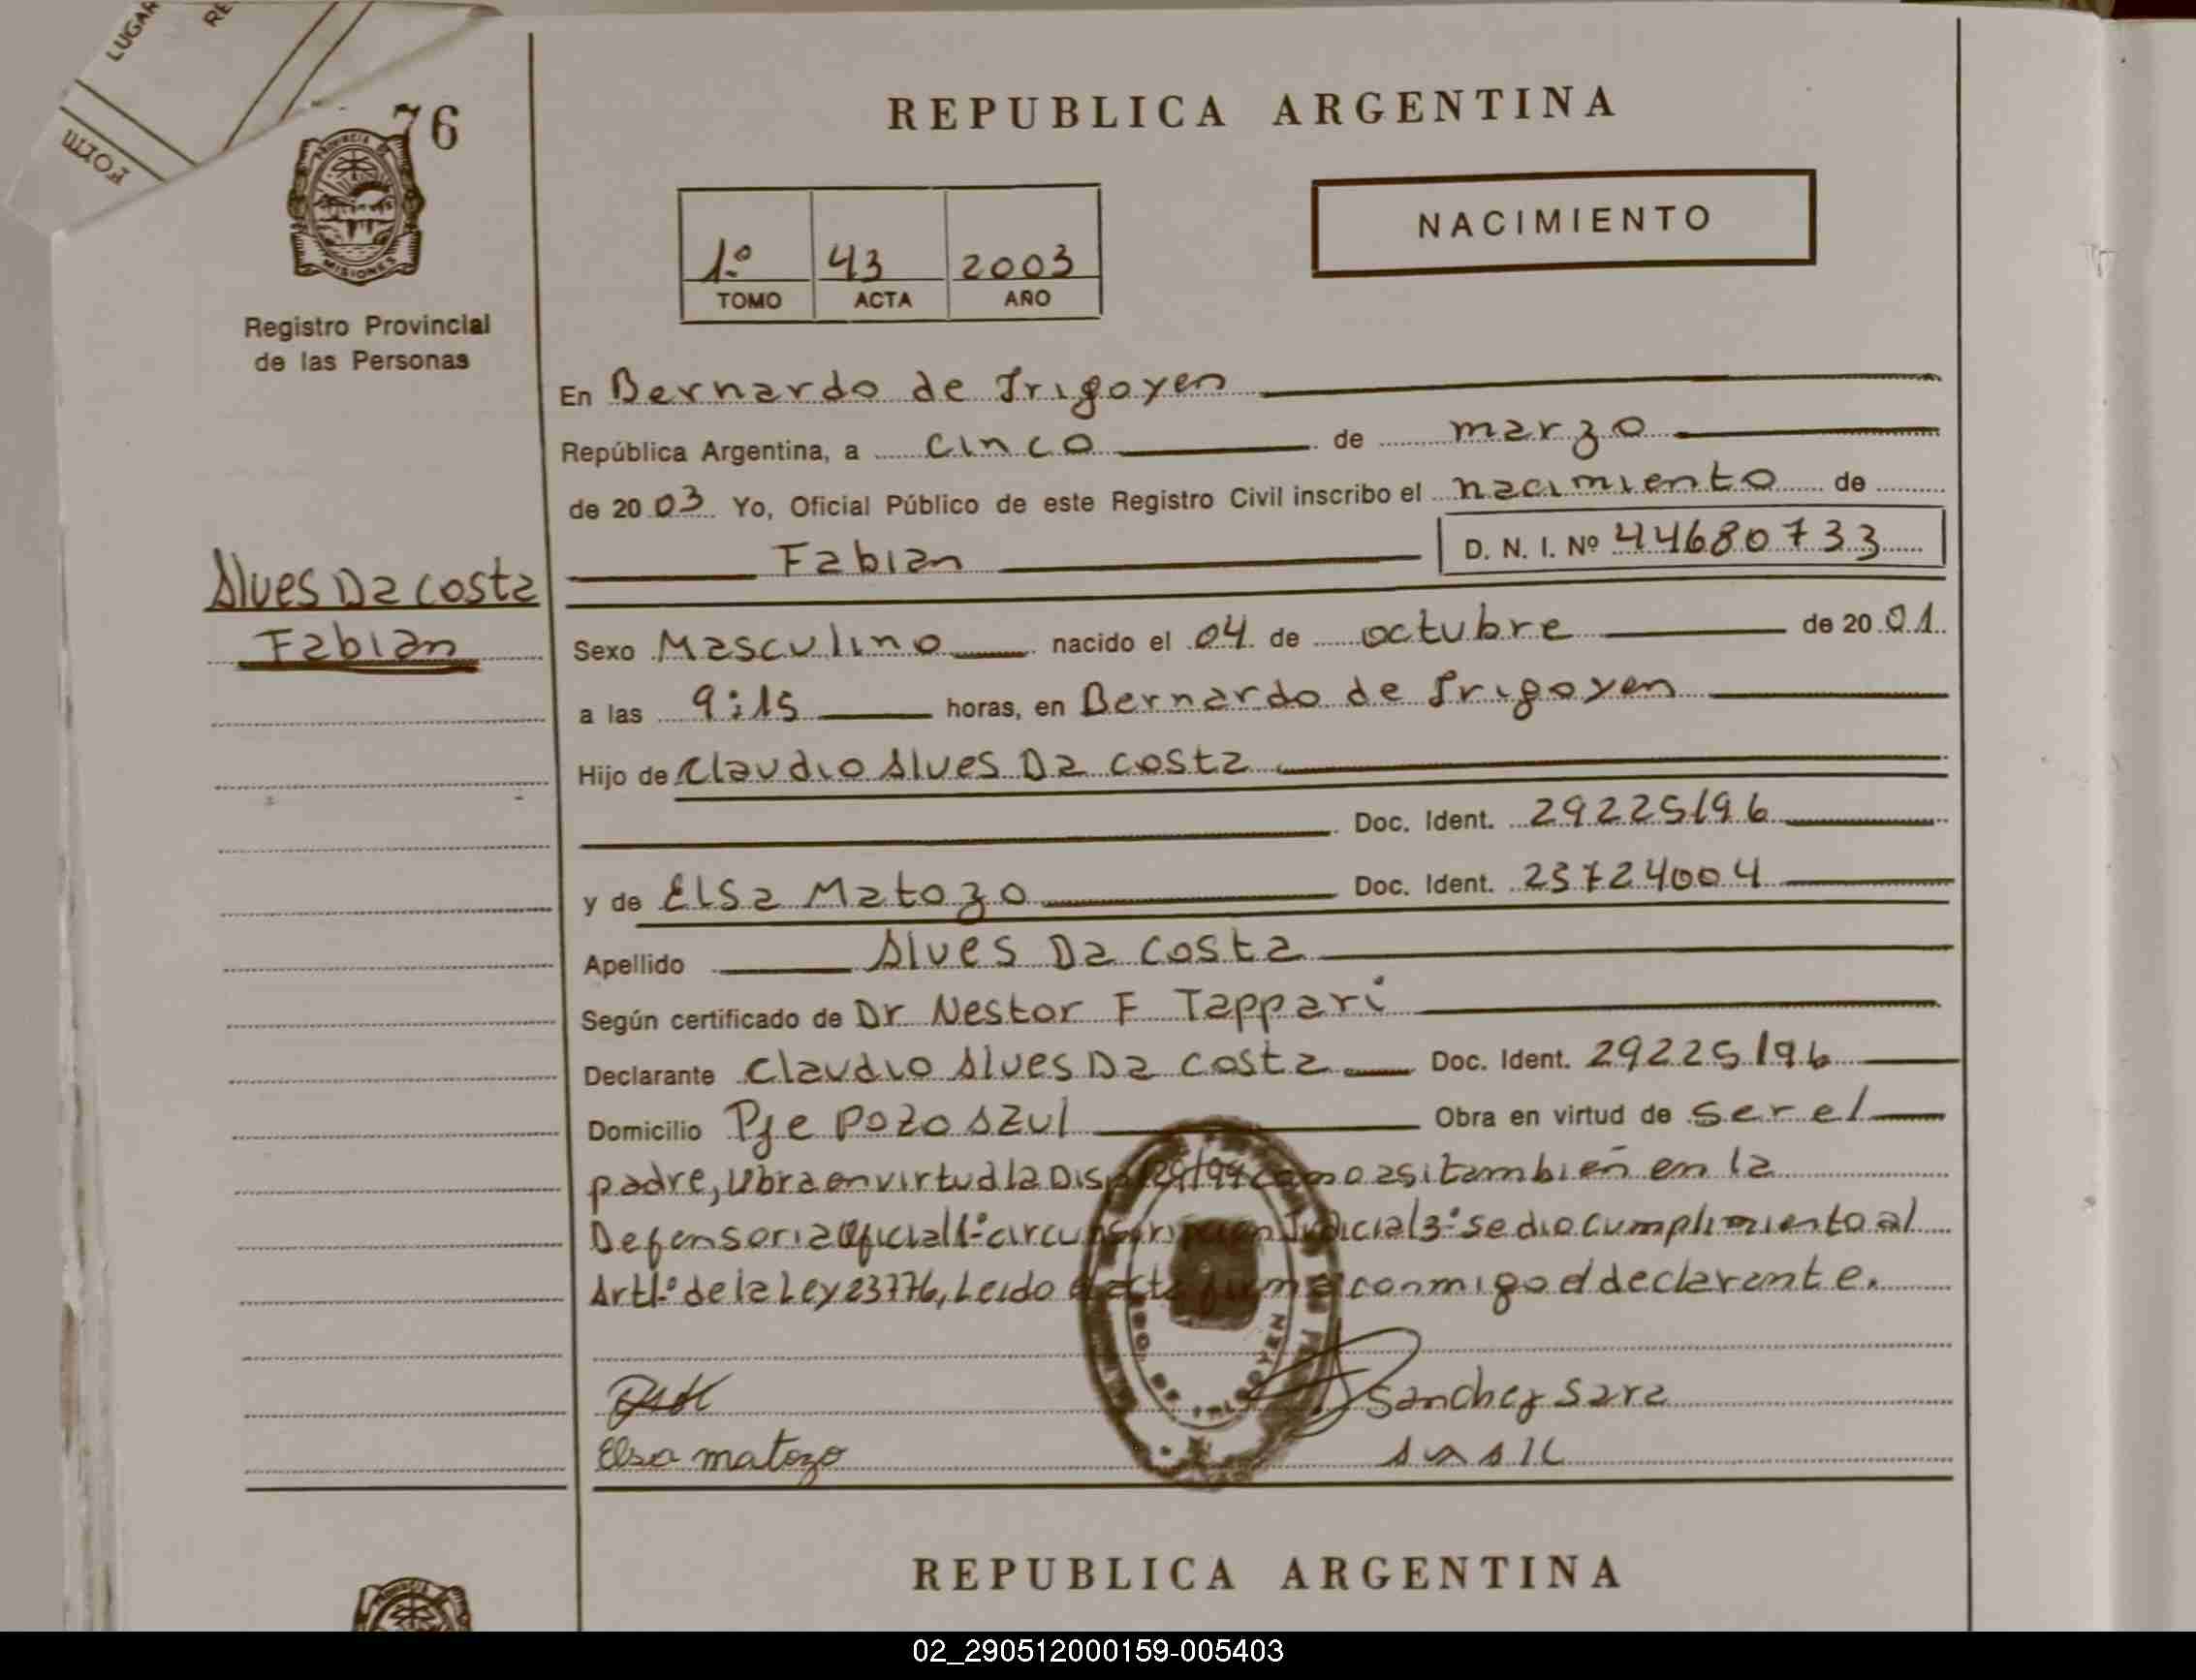 LUGAR
RE
Form
76
PROVINCIA DE
MISIONES
Registro Provincial
de las Personas
REPUBLICA ARGENTINA
NACIMIENTO
1º 43 2003
TOMO ACTA AÑO
En Bernardo de Irigoyen
República Argentina, a cinco de marzo
de 20 03 Yo, Oficial Público de este Registro Civil inscribo el nacimiento de
Fabian D. N. I. Nº 44680733
Alves Da costa
Fabian
Sexo Masculino nacido el 04 de octubre de 20 01
a las 9:15 horas, en Bernardo de Irigoyen
Hijo de Claudio Alves Da costa
Doc. Ident. 29225196
y de Elsa Matozo Doc. Ident. 25724004
Apellido Alves Da costa
Según certificado de Dr Nestor F Tappari
Declarante Claudio Alves Da costa Doc. Ident. 29225196
Domicilio Pje Pozo Azul Obra en virtud de ser el
padre, Obra en virtud la Disp 29/94 como asi tambien en la
Defensoria Oficial 1º circunscripcion Judicial 3º se dio cumplimiento al
Art 1º de la Ley 23776, Leido el acta firma conmigo el declarante.
Sanchez Sara
Elsa matozo
REPUBLICA ARGENTINA
02_290512000159-005403